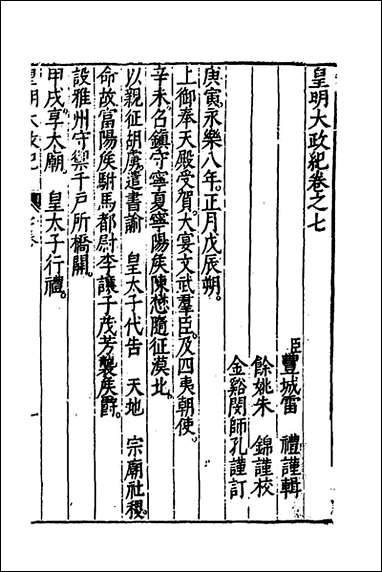 皇明大政紀卷之七
臣豐城雷 禮謹輯
餘姚朱 錦謹校
金谿閔師孔謹訂
庚寅永樂八年。正月戊辰朔。
上御奉天殿受賀。大宴文武羣臣。及四夷朝使。
辛未召鎮守寧夏寧陽侯陳懋隨征漠北。
以親征胡虜遣書諭 皇太子代告 天地 宗廟社稷。
命故富陽侯駙馬都尉李讓子茂芳襲侯爵。
設雅州守禦千戶所橋關。
甲戌享太廟。 皇太子行禮。
皇明大政紀 卷 一